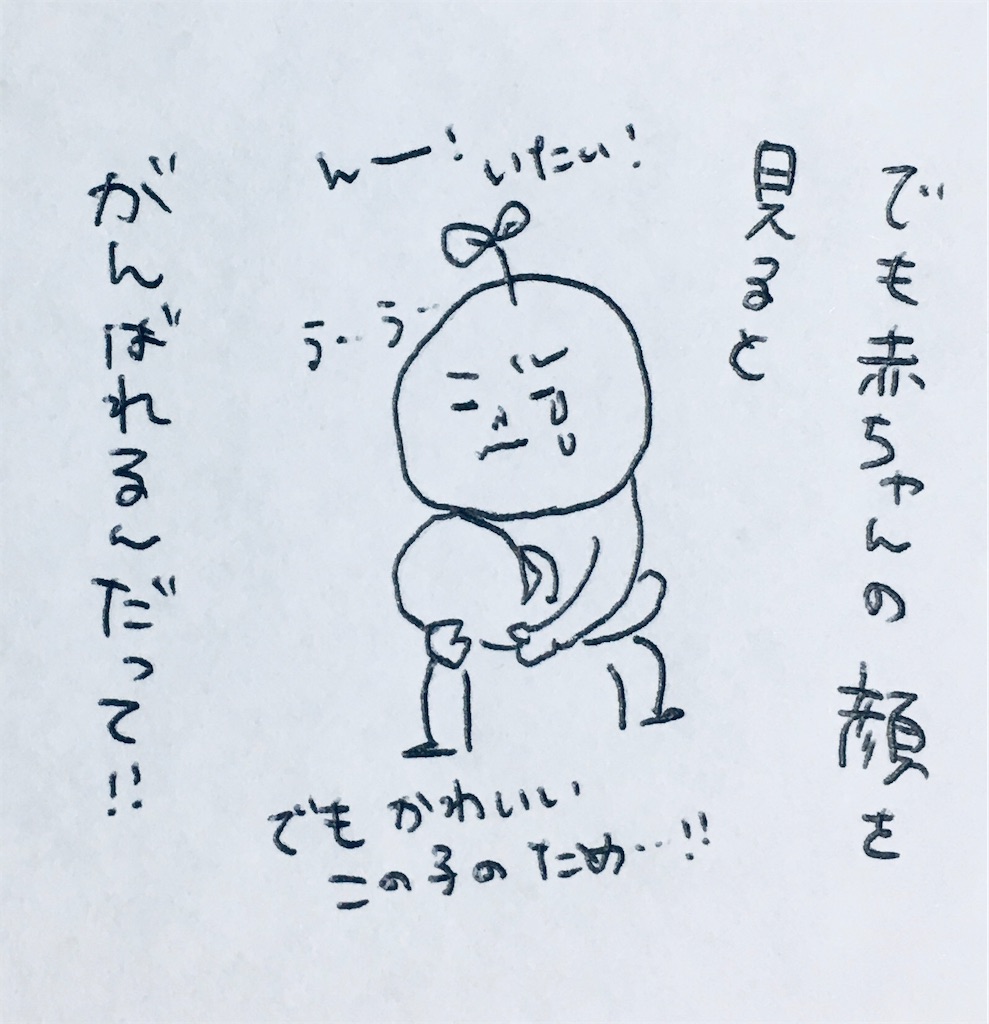 でも赤ちゃんの顔を
見ると
んー！いたい！
う…う…
でもかわいい
この子のため…!!
がんばれるんだって!!